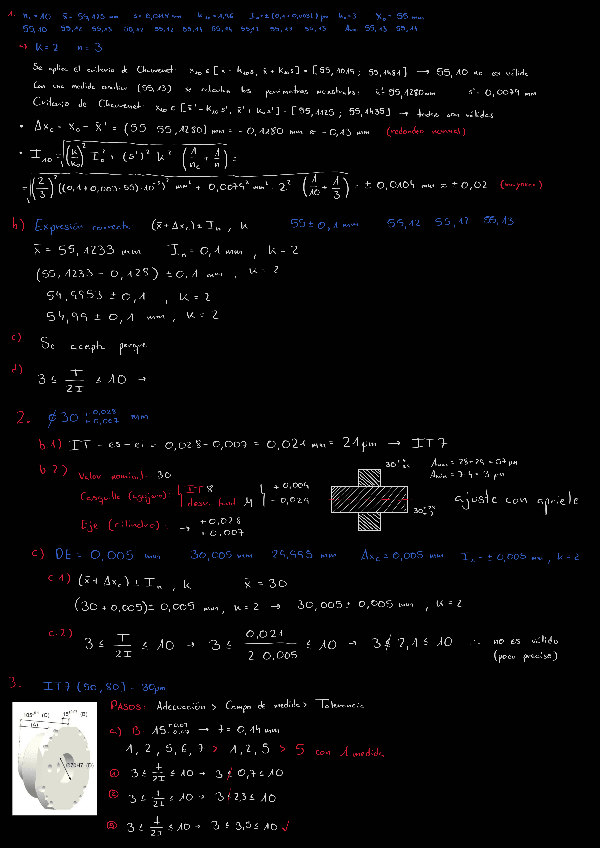 1. n₁ = 10 x̄ = 55,125 mm s = 0,0118 mm k₁₀ = 1,96 I₀ = ± (0,1 + 0,003L) μm k₀ = 3 x₀ = 55 mm
55,10 55,12 55,13
a) k = 2 n = 3
Se aplica el criterio de Chauvenet: → 55,10 no es válido
Con una medida anómala se recalculan los parámetros muestrales: x̄' = 55,1280 mm s' = 0,0079 mm
Criterio de Chauvenet: = [55,1125 ; 55,1435] → todas son válidas
• Δxc = x₀ - x̄' = (55 - 55,1280) mm = - 0,1280 mm ≈ - 0,13 mm (redondeo normal)
• I₁₀ = √((k/k₀)² I₀² + (s')² k² (1/nc + 1/n)) =
= √((2/3)² ((0,1 + 0,003·55)·10⁻³)² mm² + 0,0079² mm² · 2² (1/10 + 1/3)) = ± 0,0104 mm ≈ ± 0,02
b) Expresión correcta: (x̄ + Δxc) ± Iₙ , k 55 ± 0,1 mm 55,12 55,12 55,13
x̄ = 55,1233 mm Iₙ = 0,1 mm , k = 2
(55,1233 - 0,128) ± 0,1 mm , k = 2
54,9953 ± 0,1 , k = 2
54,99 ± 0,1 mm , k = 2
c) Se acepta porque
d) 3 ≤ T/2I ≤ 10 →
2. ϕ 30 +0,028 +0,007 mm
b.1) IT = es - ei = 0,028 - 0,007 = 0,021 mm = 21 μm → IT7
b.2) Valor nominal: 30
Casquillo (agujero): IT8 desv. fund. +0,004 -0,029
Eje (cilindro): → +0,028 +0,007
ajuste con apriete
c) DE = 0,005 mm 30,005 mm 29,995 mm Δxc = 0,005 mm Iₙ = ± 0,005 mm, k = 2
c.1) (x̄ + Δxc) ± Iₙ , k x̄ = 30
(30 + 0,005) ± 0,005 mm, k = 2 → 30,005 ± 0,005 mm , k = 2
c.2) 3 ≤ T/2I ≤ 10 → 3 ≤ 0,021/2·0,005 ≤ 10 → 3 ≰ 2,1 ≤ 10 ∴ no es válido
(poco preciso)
3. IT7 (50, 80) = 30 μm
PASOS: Adecuación > Campo de medida > Tolerancia
a) B: 15 +0,07 -0,07 → t = 0,14 mm
1, 2, 5, 6, 7 > 1, 2, 5 > 5 con 1 medida
① 3 ≤ t/2I ≤ 10 → 3 ≰ 0,7 ≤ 10
② 3 ≤ t/2I ≤ 10 → 3 ≰ 2,3 ≤ 10
⑤ 3 ≤ t/2I ≤ 10 → 3 ≤ 3,5 ≤ 10 ✓